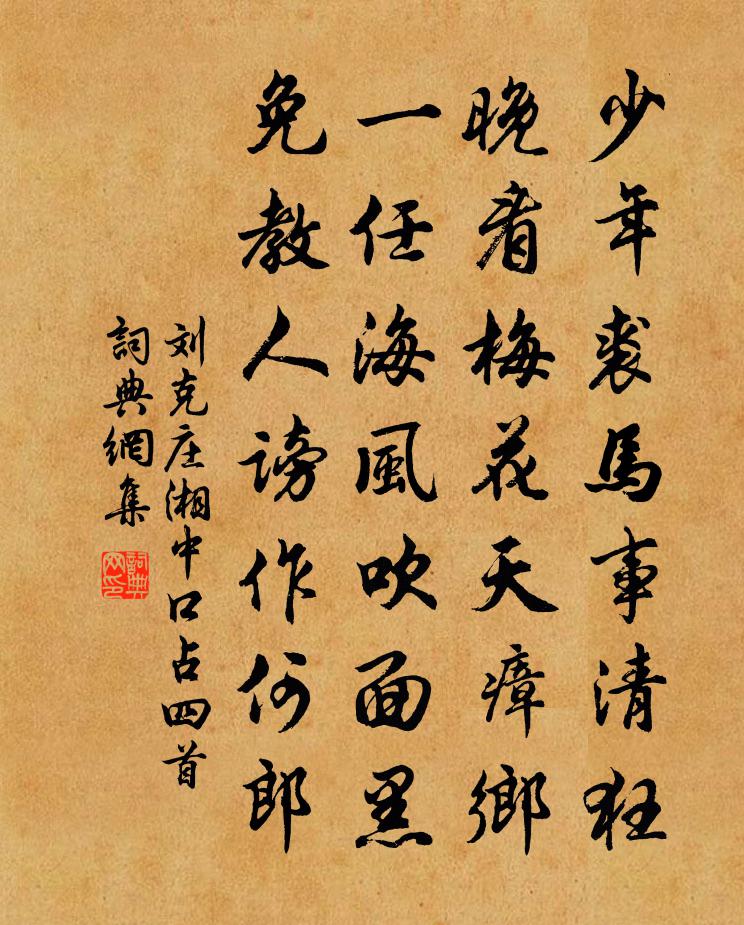 少年裘馬事清狂
晚看梅花天瘴鄉
一任海風吹面黑
免教人謗作何郎
刘克庄湘中口占四首
詞典網集
詞典网印